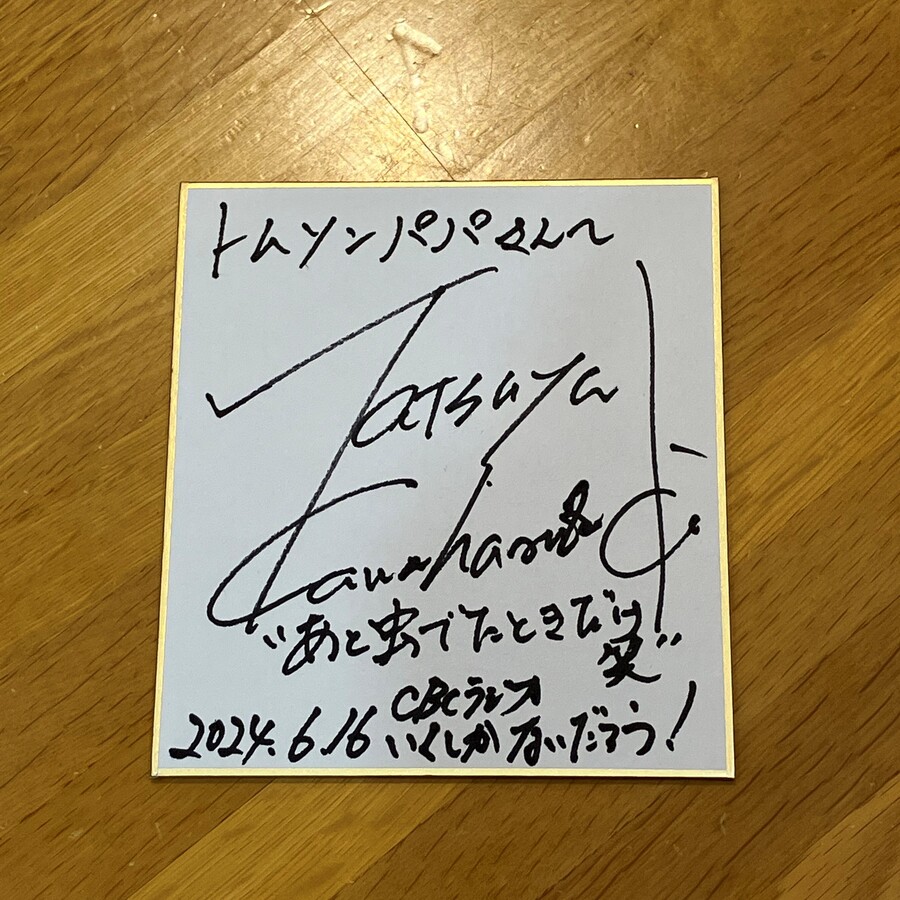 トムソンパパさんへ
Tatsuya
"あと虫でたときだけ
笑"
CBCラジオ
2024.6.16 いくしかないだろう!